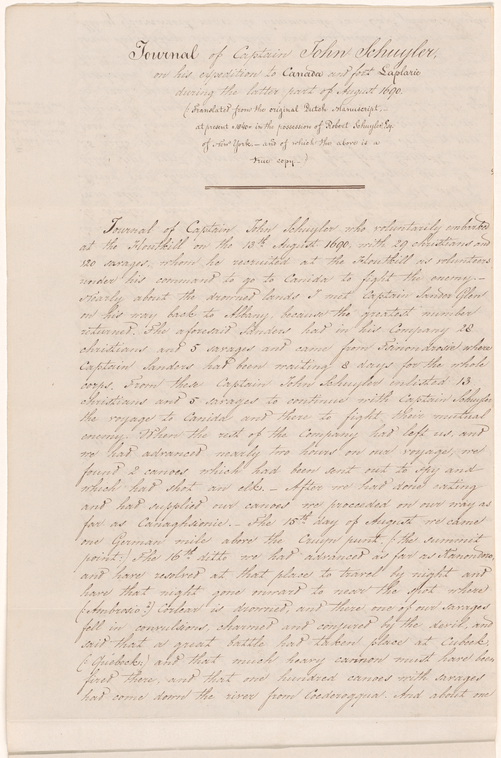 Journal of Captain John Schuyler,
on his expedition to Canada and fort Laplarie
during the latter part of August 1690.
(Translated from the original Dutch Manuscript,
at present in the possession of Robert Schuyler Esq.
of New York — and of which the above is a
true copy.)
Journal of Captain John Schuyler who voluntarily embarked
at the Flouthill on the 13th August 1690, with 29 christians and
120 savages, whom he recruited at the Flouthill as volunteers
under his command to go to Canida to fight the enemy —
Nearly about the drowned lands I met Captain Sander Glen
on his way back to Albany, because the greatest number
returned. The aforesaid Sanders had in his Company 28
christians and 5 savages and came from where
Captain Sanders had been waiting 8 days for the whole
corps. From these Captain John Schuyler enlisted 13
christians and 5 savages to continue with Captain Schuyler
the voyage to Canida and there to fight their mutual
enemy. When the rest of the Company had left us, and
we had advanced nearly two hours on our voyage, we
found 2 canoes which had been sent out to spy and
which had shot an elk. — After we had done eating
and had supplied our canoes we proceeded on our way as
far as Canaghsionie. — The 15th day of August we came
one German mile above the Cruyn punt, (the summit
point.) The 16th ditto we had advanced as far as Kanondoro,
and have resolved at that place to travel by night and
have that night gone onward to near the spot where
(Ambrosio?) Corlear is drowned, and there one of our savages
fell in convulsions, charmed and conjured by the devil, and
said that a great battle had taken place at Cubeck,
and that much heavy cannon must have been
fired there, and that one hundred canoes with savages
had come down the river from . And about one